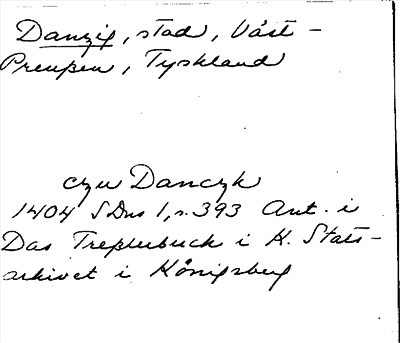 Danzig, stad, Väst-
Preuẞen, Tyskland
czu Danczk
1404 SDns 1, s. 393 Ant. i
Das Treßlerbuch i K. Stats-
arkivet i Königsberg